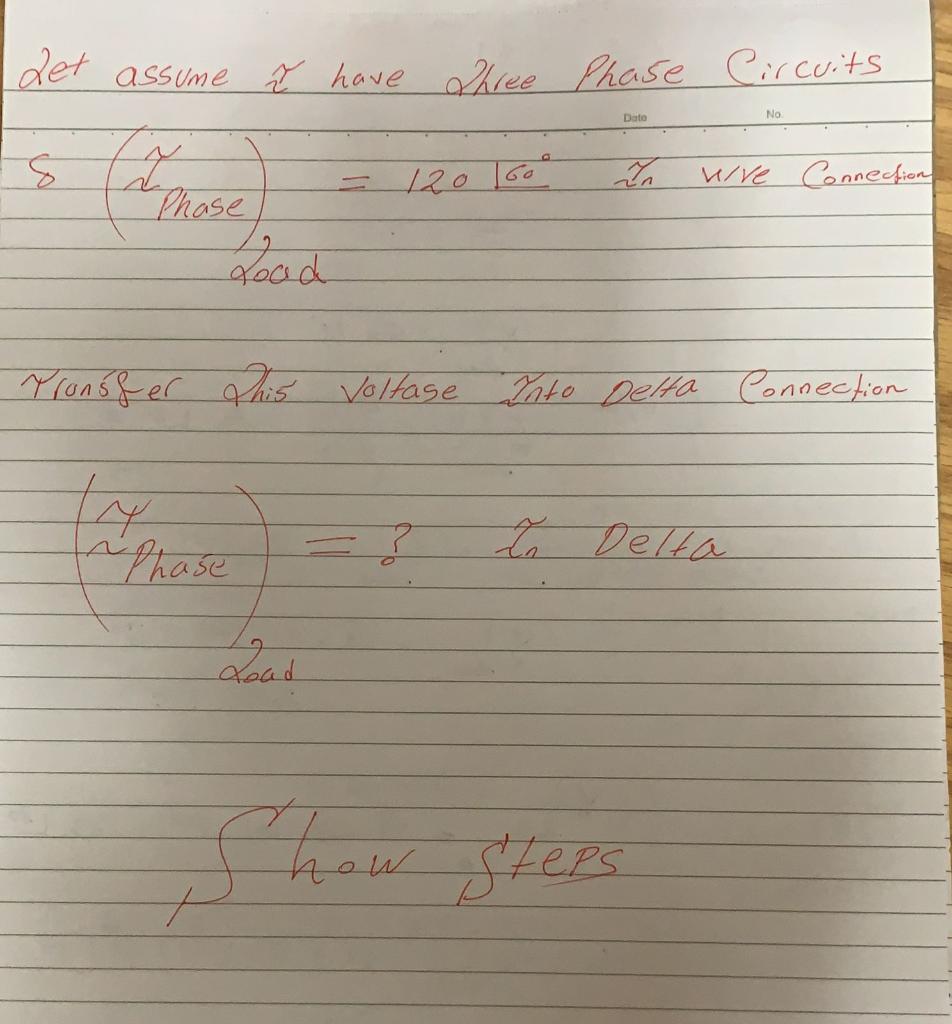 Let assume I have Three Phase Circuits
Date No.
& (I Phase) Load = 120 ∠60° In wye Connection
Transfer This Voltage Into Delta Connection
(V Phase) Load = ? In Delta
Show Steps